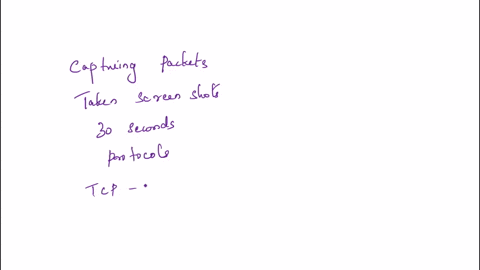 Capturing Packets
Taken screen shots
30 seconds
protocols
TCP -